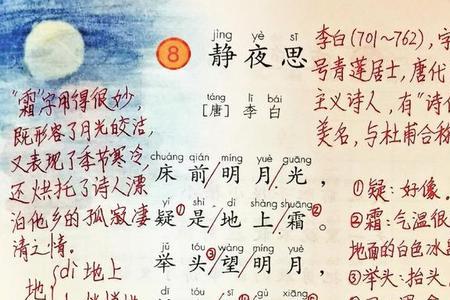 jìng yè sī
8 静夜思
táng lǐ bái
[唐] 李白
chuáng qián míng yuè guāng
床前/明月/光，
疑①是/地上/霜②。
jǔ tóu wàng míng yuè
举头③/望/明月
"霜"字用得很妙，
既形容了月光皎洁，
又表现了季节寒冷，
还烘托了诗人漂
泊他乡的孤寂凄
清之情。
地 dì 地上
李白(701~762)，字
号青莲居士，唐代
主义诗人，有"诗
美名，与杜甫合称
①疑：好像。
②霜：气温很
地面的白色冰
③举头：抬头